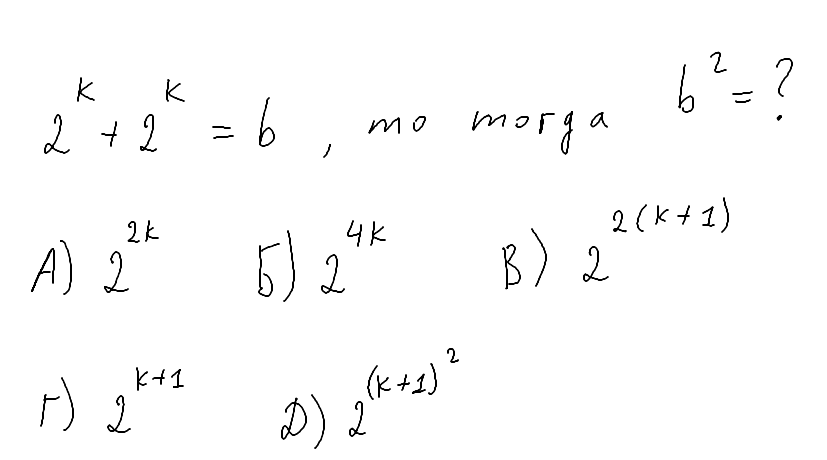 2^k + 2^k = b, то тогда b^2 = ?
А) 2^{2k} Б) 2^{4k} В) 2^{2(k+1)}
Г) 2^{k+1} Д) 2^{(k+1)^2}